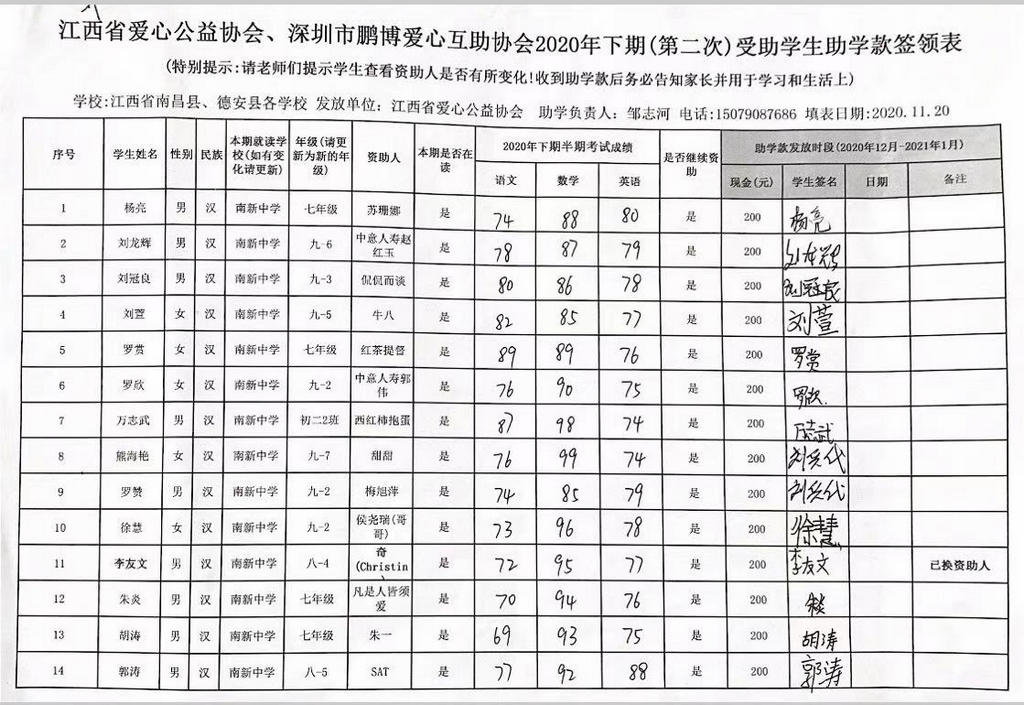 江西省爱心公益协会、深圳市鹏博爱心互助协会2020年下期(第二次)受助学生助学款签领表
(特别提示:请老师们提示学生查看资助人是否有所变化!收到助学款后务必告知家长并用于学习和生活上)
学校:江西省南昌县、德安县各学校 发放单位: 江西省爱心公益协会 助学负责人: 邹志河 电话:15079087686 填表日期:2020.11.20
序号 学生姓名 性别 民族 本期就读学校(如有变化请更新) 年级(请更新为新的年级) 资助人 本期是否在读 2020年下期半期考试成绩 是否继续资助 助学款发放时段(2020年12月-2021年1月)
语文 数学 英语 现金(元) 学生签名 日期 备注
1 杨亮 男 汉 南新中学 七年级 苏珊娜 是 74 88 80 是 200 杨亮
2 刘龙辉 男 汉 南新中学 九-6 中意人寿赵红玉 是 78 87 79 是 200
3 刘冠良 男 汉 南新中学 九-3 侃侃而谈 是 80 86 78 是 200 刘冠良
4 刘萱 女 汉 南新中学 九-5 牛八 是 82 85 77 是 200 刘萱
5 罗赏 女 汉 南新中学 七年级 红茶提督 是 89 89 76 是 200 罗赏
6 罗欣 女 汉 南新中学 九-2 中意人寿郭伟 是 76 90 75 是 200 罗欣
7 万志武 男 汉 南新中学 初二2班 西红柿抱蛋 是 87 98 74 是 200 万志武
8 熊海艳 女 汉 南新中学 九-7 甜甜 是 76 99 74 是 200
9 罗赞 男 汉 南新中学 九-2 梅旭萍 是 74 85 79 是 200
10 徐慧 女 汉 南新中学 九-2 侯尧瑞(哥哥) 是 73 96 78 是 200 徐慧
11 李友文 男 汉 南新中学 八-4 奇(Christin) 是 72 95 77 是 200 李友文 已换资助人
12 朱炎 男 汉 南新中学 七年级 凡是人皆须爱 是 70 94 76 是 200 朱炎
13 胡涛 男 汉 南新中学 七年级 朱一 是 69 93 75 是 200 胡涛
14 郭涛 男 汉 南新中学 八-5 SAT 是 77 92 88 是 200 郭涛